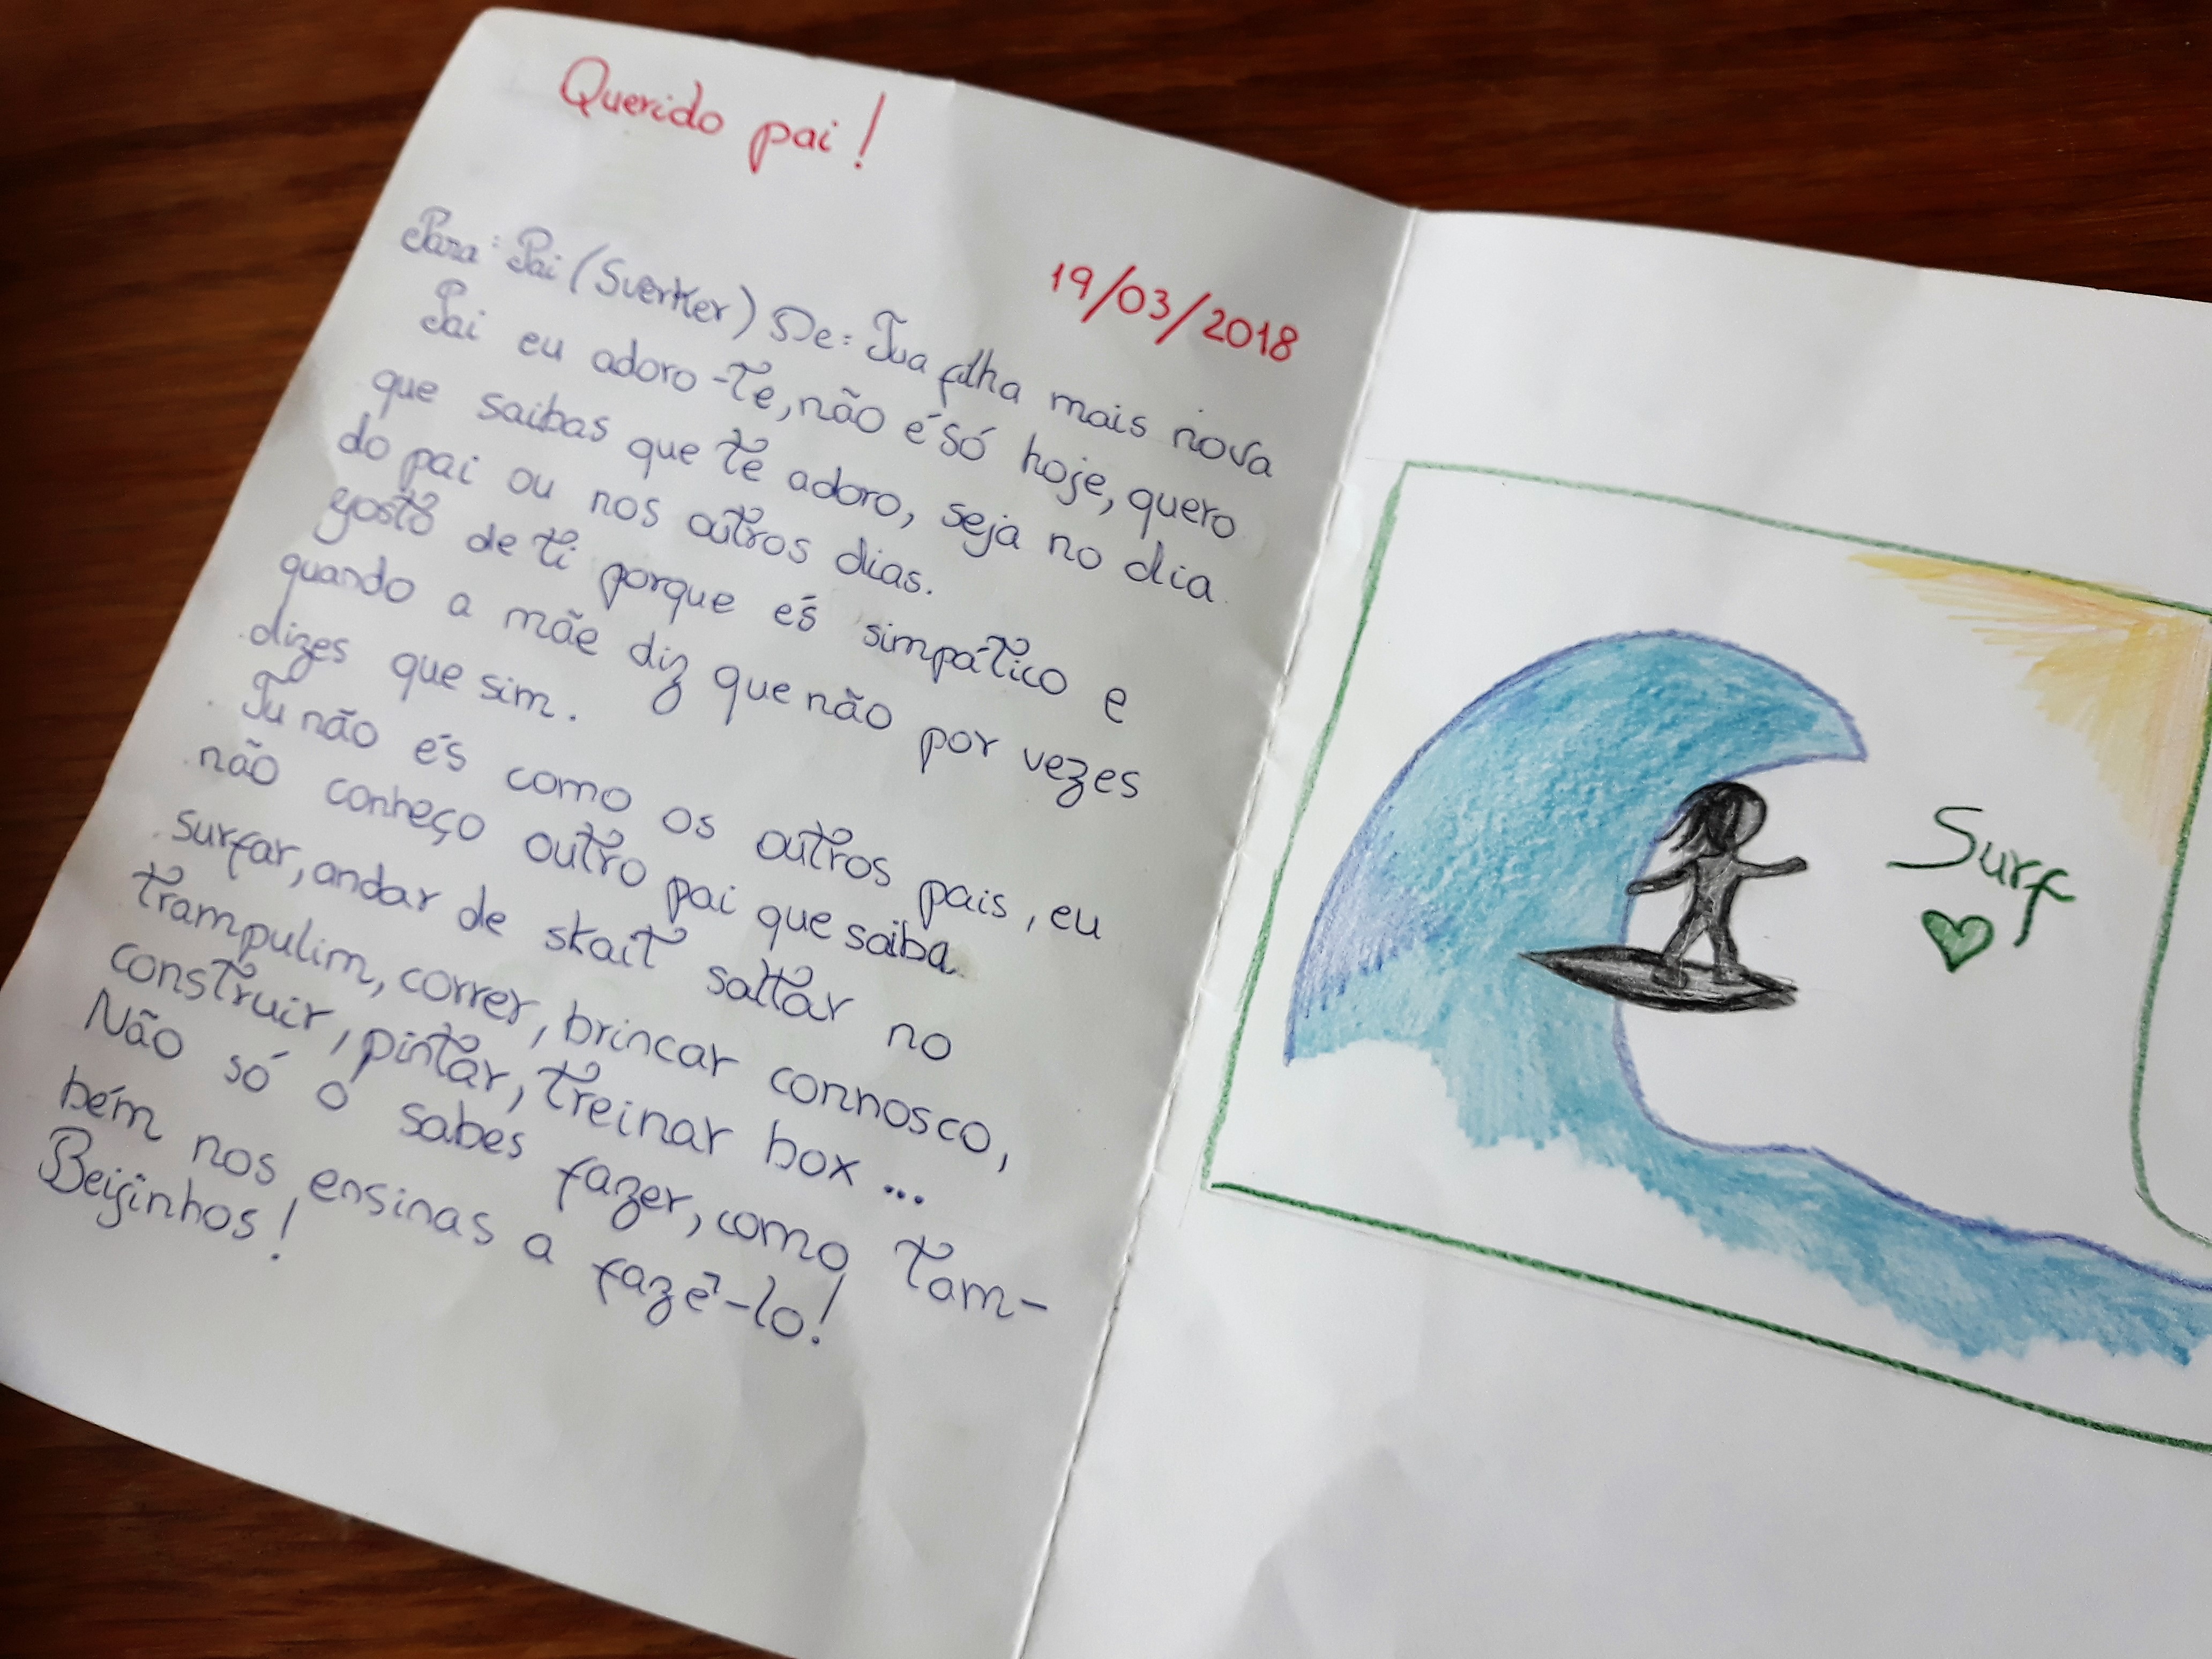 Querido pai!
19/03/2018
Para: Pai (Sverker) De: Tua filha mais nova
Pai eu adoro-te, não é só hoje, quero
que saibas que te adoro, seja no dia
do pai ou nos outros dias.
gosto de ti porque és simpático e
quando a mãe diz que não por vezes
dizes que sim.
Tu não és como os outros pais, eu
não conheço outro pai que saiba
surfar, andar de skait saltar no
trampulim, correr, brincar connosco,
construir, pintar, treinar box...
Não só o sabes fazer, como tam-
bém nos ensinas a fazê-lo!
Beijinhos!
Surf